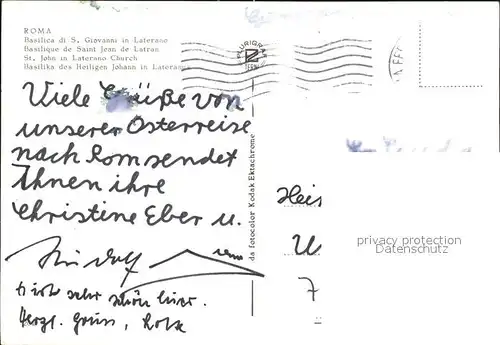 ROMA
Basilica di S. Giovanni in Laterano
Basilique de Saint Jean de Latran
St. John in Laterano Church
Basilika des Heiligen Johann in Laterano
Viele Grüße von
unserer Osterreise
nach Rom sendet
Ihnen ihre
Christine Eber u.
Rudolf
sehr schön hier.
Herzl. Gruss,
da fotocolor Kodak Ektachrome
PLURIGRAF
TERNI
Heis
U
7
privacy protection
Datenschutz